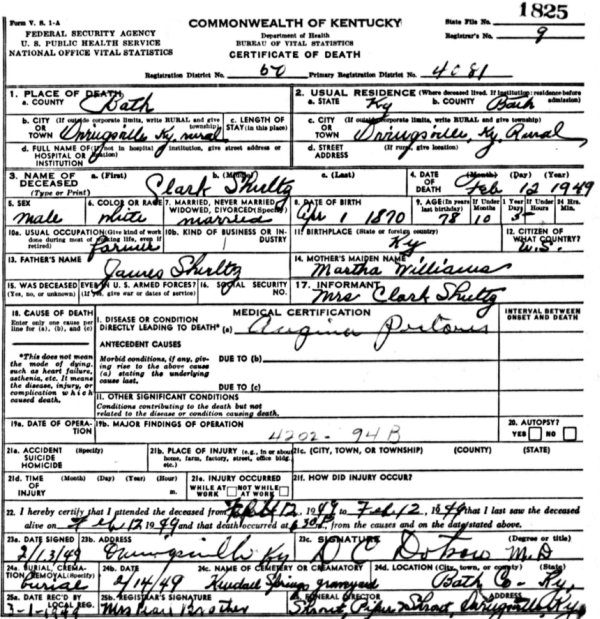 Form V. S. 1-A
COMMONWEALTH OF KENTUCKY
State File No. 1825
FEDERAL SECURITY AGENCY
U. S. PUBLIC HEALTH SERVICE
NATIONAL OFFICE VITAL STATISTICS
Department of Health
BUREAU OF VITAL STATISTICS
CERTIFICATE OF DEATH
Registrar's No. 9
Registration District No. 50 Primary Registration District No. 4081
1. PLACE OF DEATH
a. COUNTY Bath
2. USUAL RESIDENCE (Where deceased lived. If institution: residence before admission)
a. STATE Ky b. COUNTY Bath
b. CITY (If outside corporate limits, write RURAL and give township) OR TOWN Owingsville Ky. rural
c. LENGTH OF STAY (in this place)
c. CITY (If outside corporate limits, write RURAL and give township) OR TOWN Owingsville, Ky, Rural
d. FULL NAME OF (If not in hospital institution, give street address or HOSPITAL OR INSTITUTION
d. STREET ADDRESS (If rural, give location)
3. NAME OF DECEASED (Type or Print) a. (First) b. (Middle) c. (Last)
Clark Shultz
4. DATE OF DEATH (Month) (Day) (Year)
Feb 12 1949
5. SEX male
6. COLOR OR RACE white
7. MARRIED, NEVER MARRIED, WIDOWED, DIVORCED (Specify) married
8. DATE OF BIRTH Apr 1 1870
9. AGE (In years last birthday) 78
If Under 1 Year
If Under 24 Hrs.
10a. USUAL OCCUPATION (Give kind of work done during most of working life, even if retired) Farmer
10b. KIND OF BUSINESS OR INDUSTRY
11. BIRTHPLACE (State or foreign country) Ky
12. CITIZEN OF WHAT COUNTRY? U.S.
13. FATHER'S NAME James Shultz
14. MOTHER'S MAIDEN NAME Martha Williams
15. WAS DECEASED EVER IN U. S. ARMED FORCES? (Yes, no, or unknown) (If yes, give war or dates of service)
16. SOCIAL SECURITY NO.
17. INFORMANT Mrs Clark Shultz
18. CAUSE OF DEATH
Enter only one cause per line for (a), (b), and (c)
MEDICAL CERTIFICATION
INTERVAL BETWEEN ONSET AND DEATH
I. DISEASE OR CONDITION DIRECTLY LEADING TO DEATH* (a) Angina Pectoris
*This does not mean the mode of dying, such as heart failure, asthenia, etc. It means the disease, injury, or complication which caused death.
ANTECEDENT CAUSES
Morbid conditions, if any, giving rise to the above cause (a) stating the underlying cause last.
DUE TO (b)
DUE TO (c)
II. OTHER SIGNIFICANT CONDITIONS
Conditions contributing to the death but not related to the disease or condition causing death.
19a. DATE OF OPERATION
19b. MAJOR FINDINGS OF OPERATION
4202 - 94B
20. AUTOPSY? YES NO
21a. ACCIDENT SUICIDE HOMICIDE (Specify)
21b. PLACE OF INJURY (e.g., in or about home, farm, factory, street, office bldg., etc.)
21c. (CITY, TOWN, OR TOWNSHIP) (COUNTY) (STATE)
21d. TIME OF INJURY (Month) (Day) (Year) (Hour) m.
21e. INJURY OCCURRED WHILE AT WORK NOT WHILE AT WORK
21f. HOW DID INJURY OCCUR?
22. I hereby certify that I attended the deceased from Feb 12, 1949 to Feb 12, 1949 that I last saw the deceased
alive on Feb 12 1949 and that death occurred at 6:30 from the causes and on the date stated above.
23a. DATE SIGNED 2/13/49
23b. ADDRESS Owingsville Ky
23c. SIGNATURE (Degree or title) M.D
24a. BURIAL, CREMATION, REMOVAL (Specify) burial
24b. DATE 2/14/49
24c. NAME OF CEMETERY OR CREMATORY Kendall Springs graveyard
24d. LOCATION (City, town, or county) (State) Bath Co - Ky.
25a. DATE REC'D BY LOCAL REG. 3-1-1949
25b. REGISTRAR'S SIGNATURE Mrs Brother
FUNERAL DIRECTOR ADDRESS Shrout, Shrout, Owingsville, Ky.